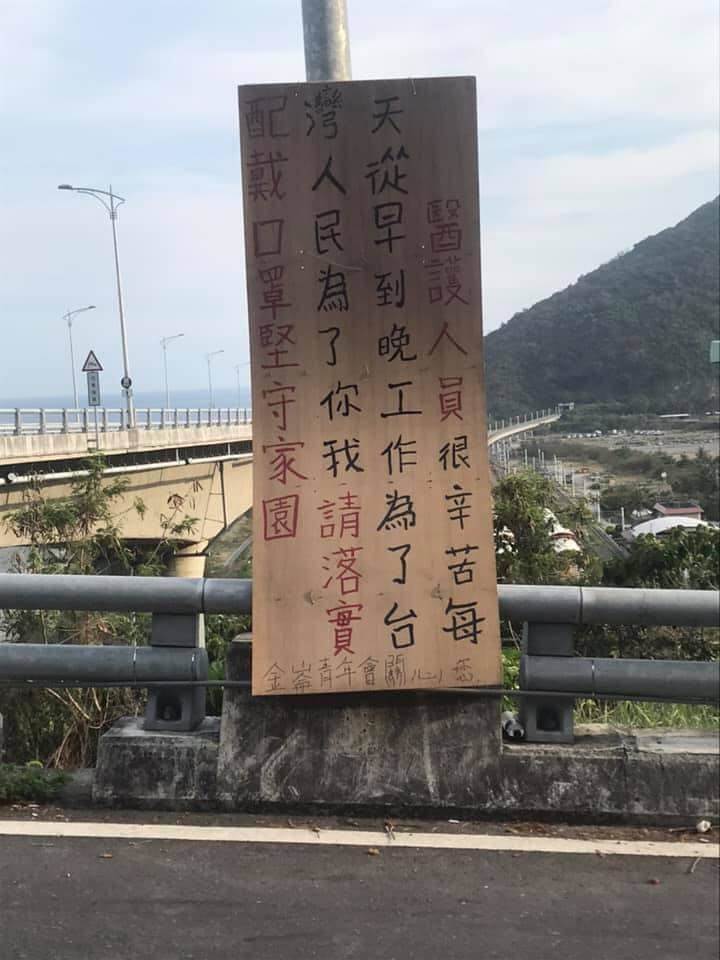 醫護人員很辛苦每
天從早到晚工作為了台
灣人民為了你我請落實
配戴口罩堅守家園
金崙青年會關心您